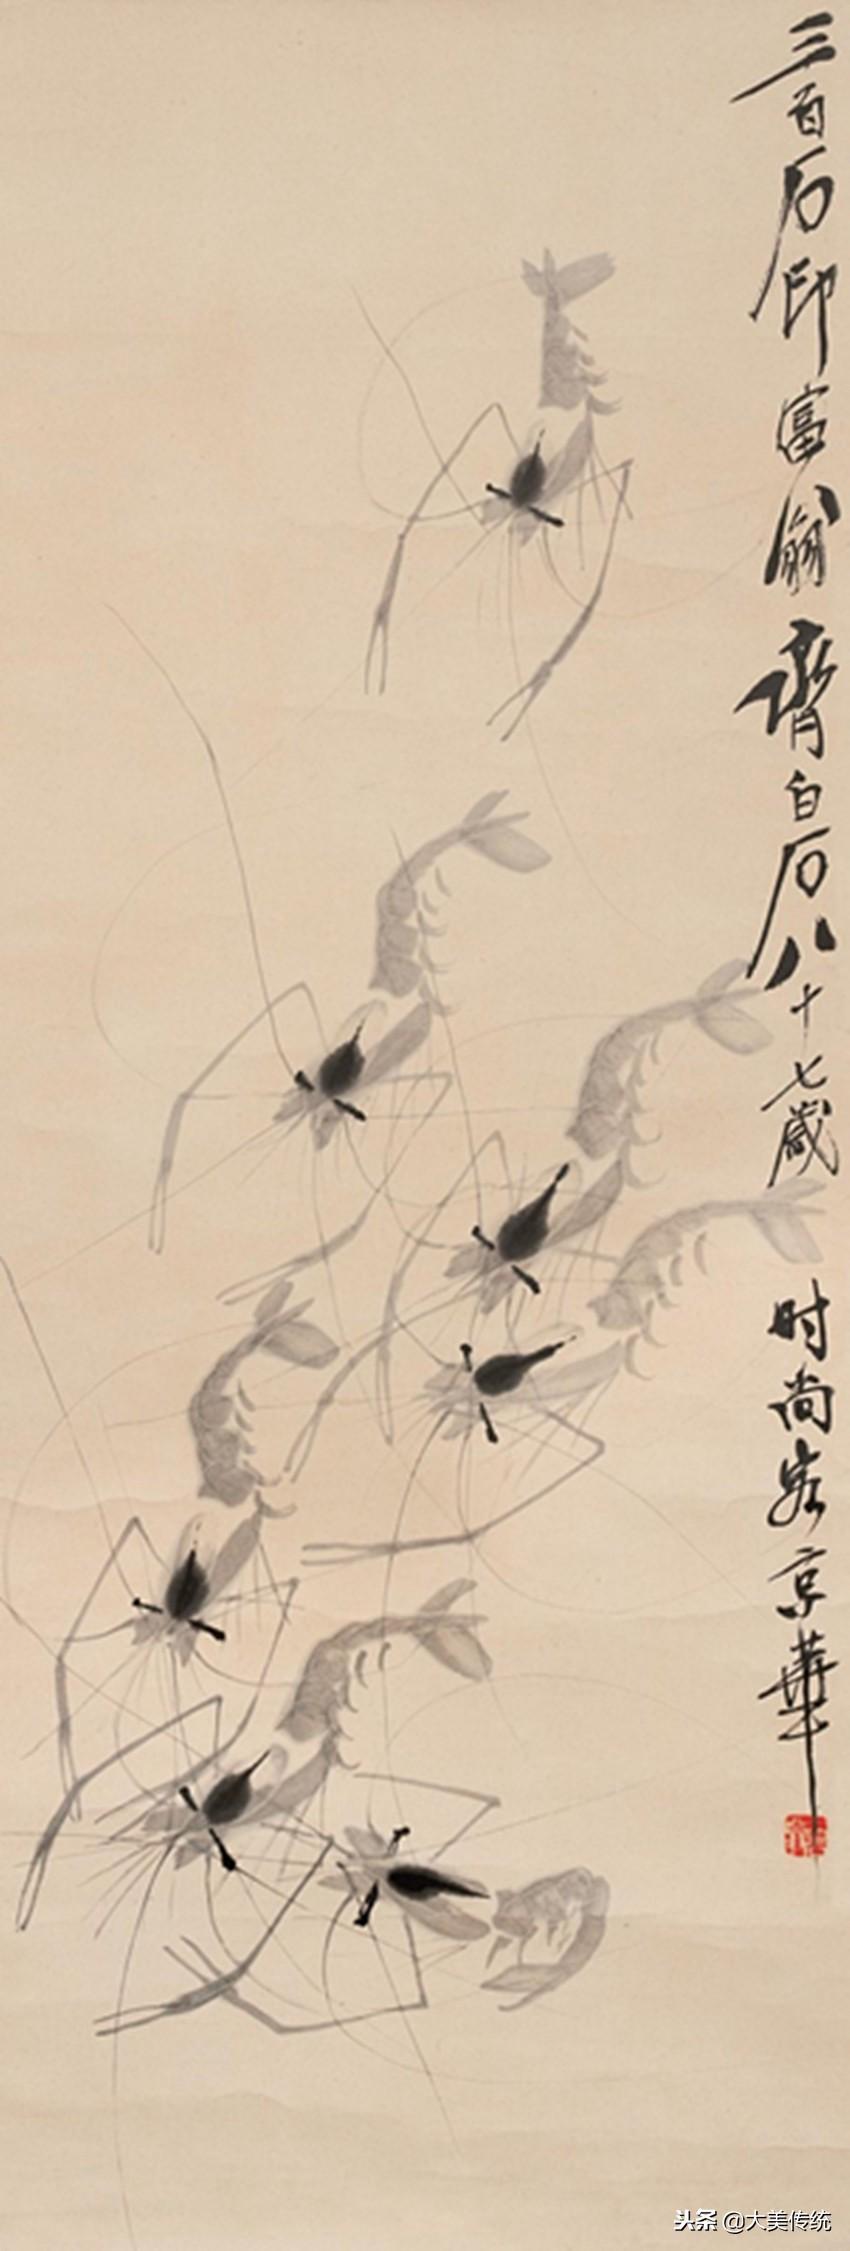 三百石印富翁齊白石八十七歲时尚客京華
头条 @大美传统